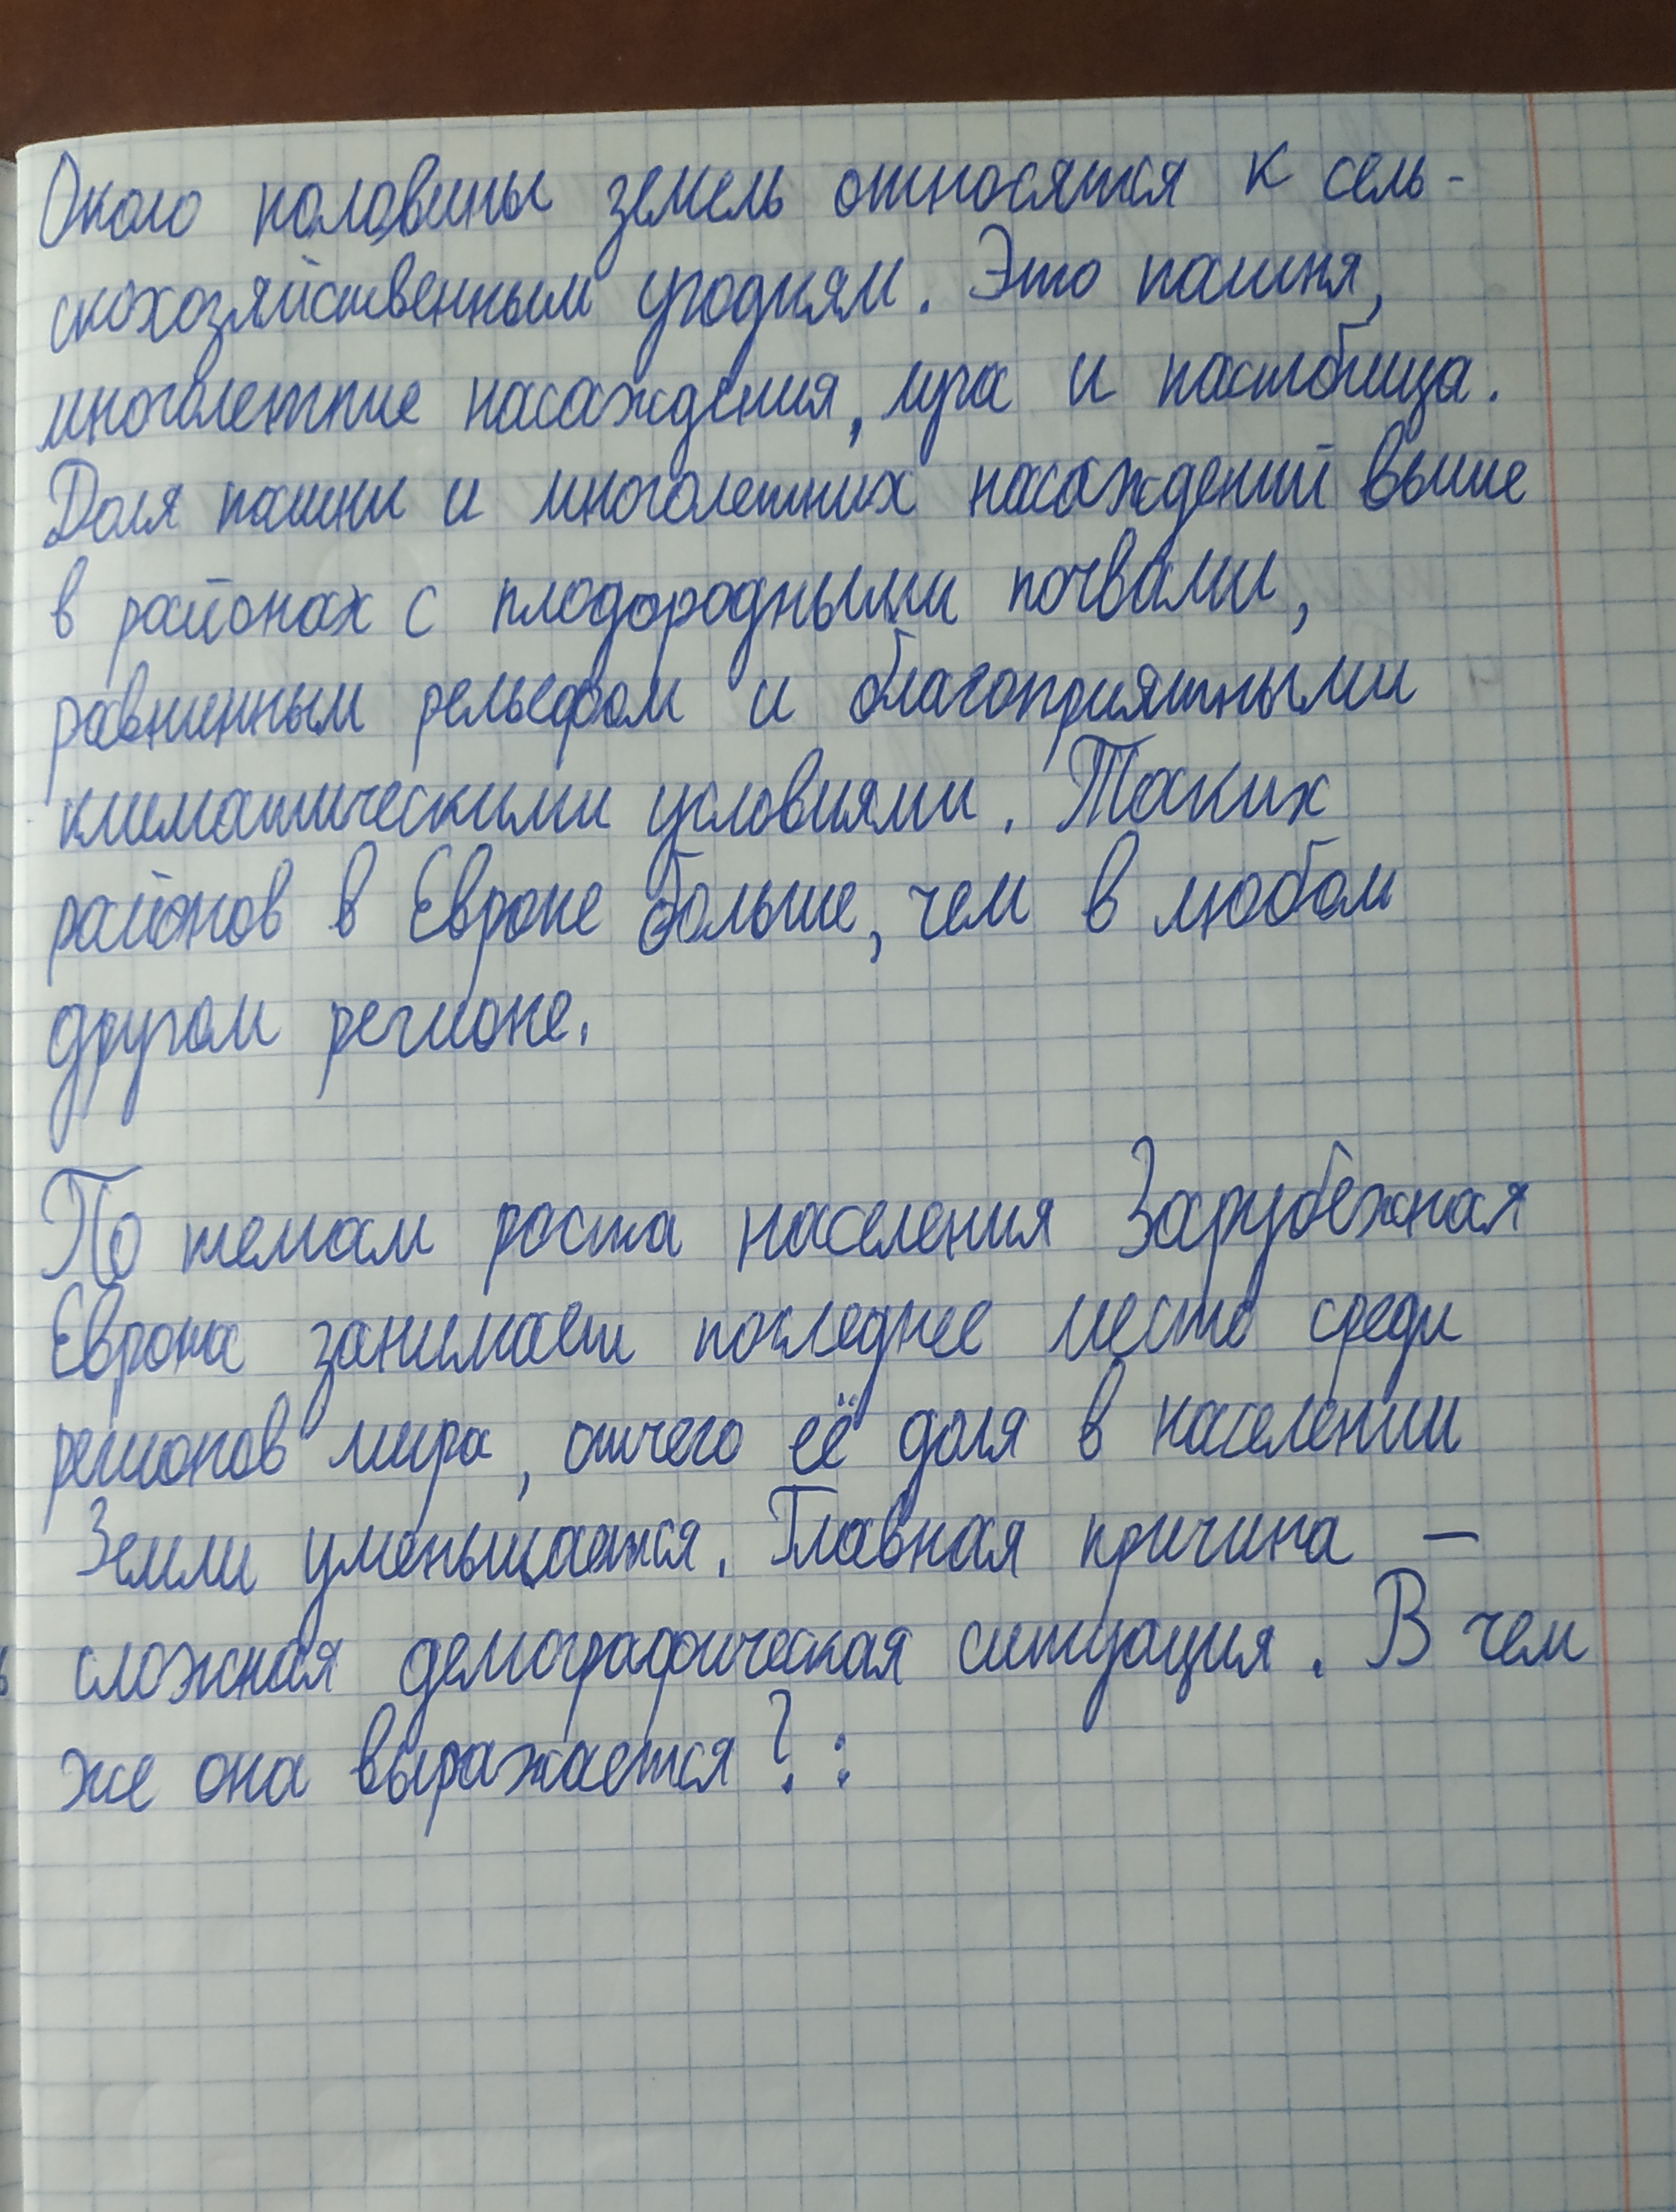 Около половины земель относятся к сель-
скохозяйственным угодиям. Это пашня,
многолетние насаждения, луга и пастбища.
Доля пашни и многолетних насаждений выше
в районах с плодородными почвами,
равнинным рельефом и благоприятными
климатическими условиями. Таких
районов в Европе больше, чем в любом
другом регионе.
По темпам роста населения Зарубежная
Европа занимает последнее место среди
регионов мира, отчего её доля в населении
Земли уменьшается. Главная причина —
сложная демографическая ситуация. В чем
же она выражается? :